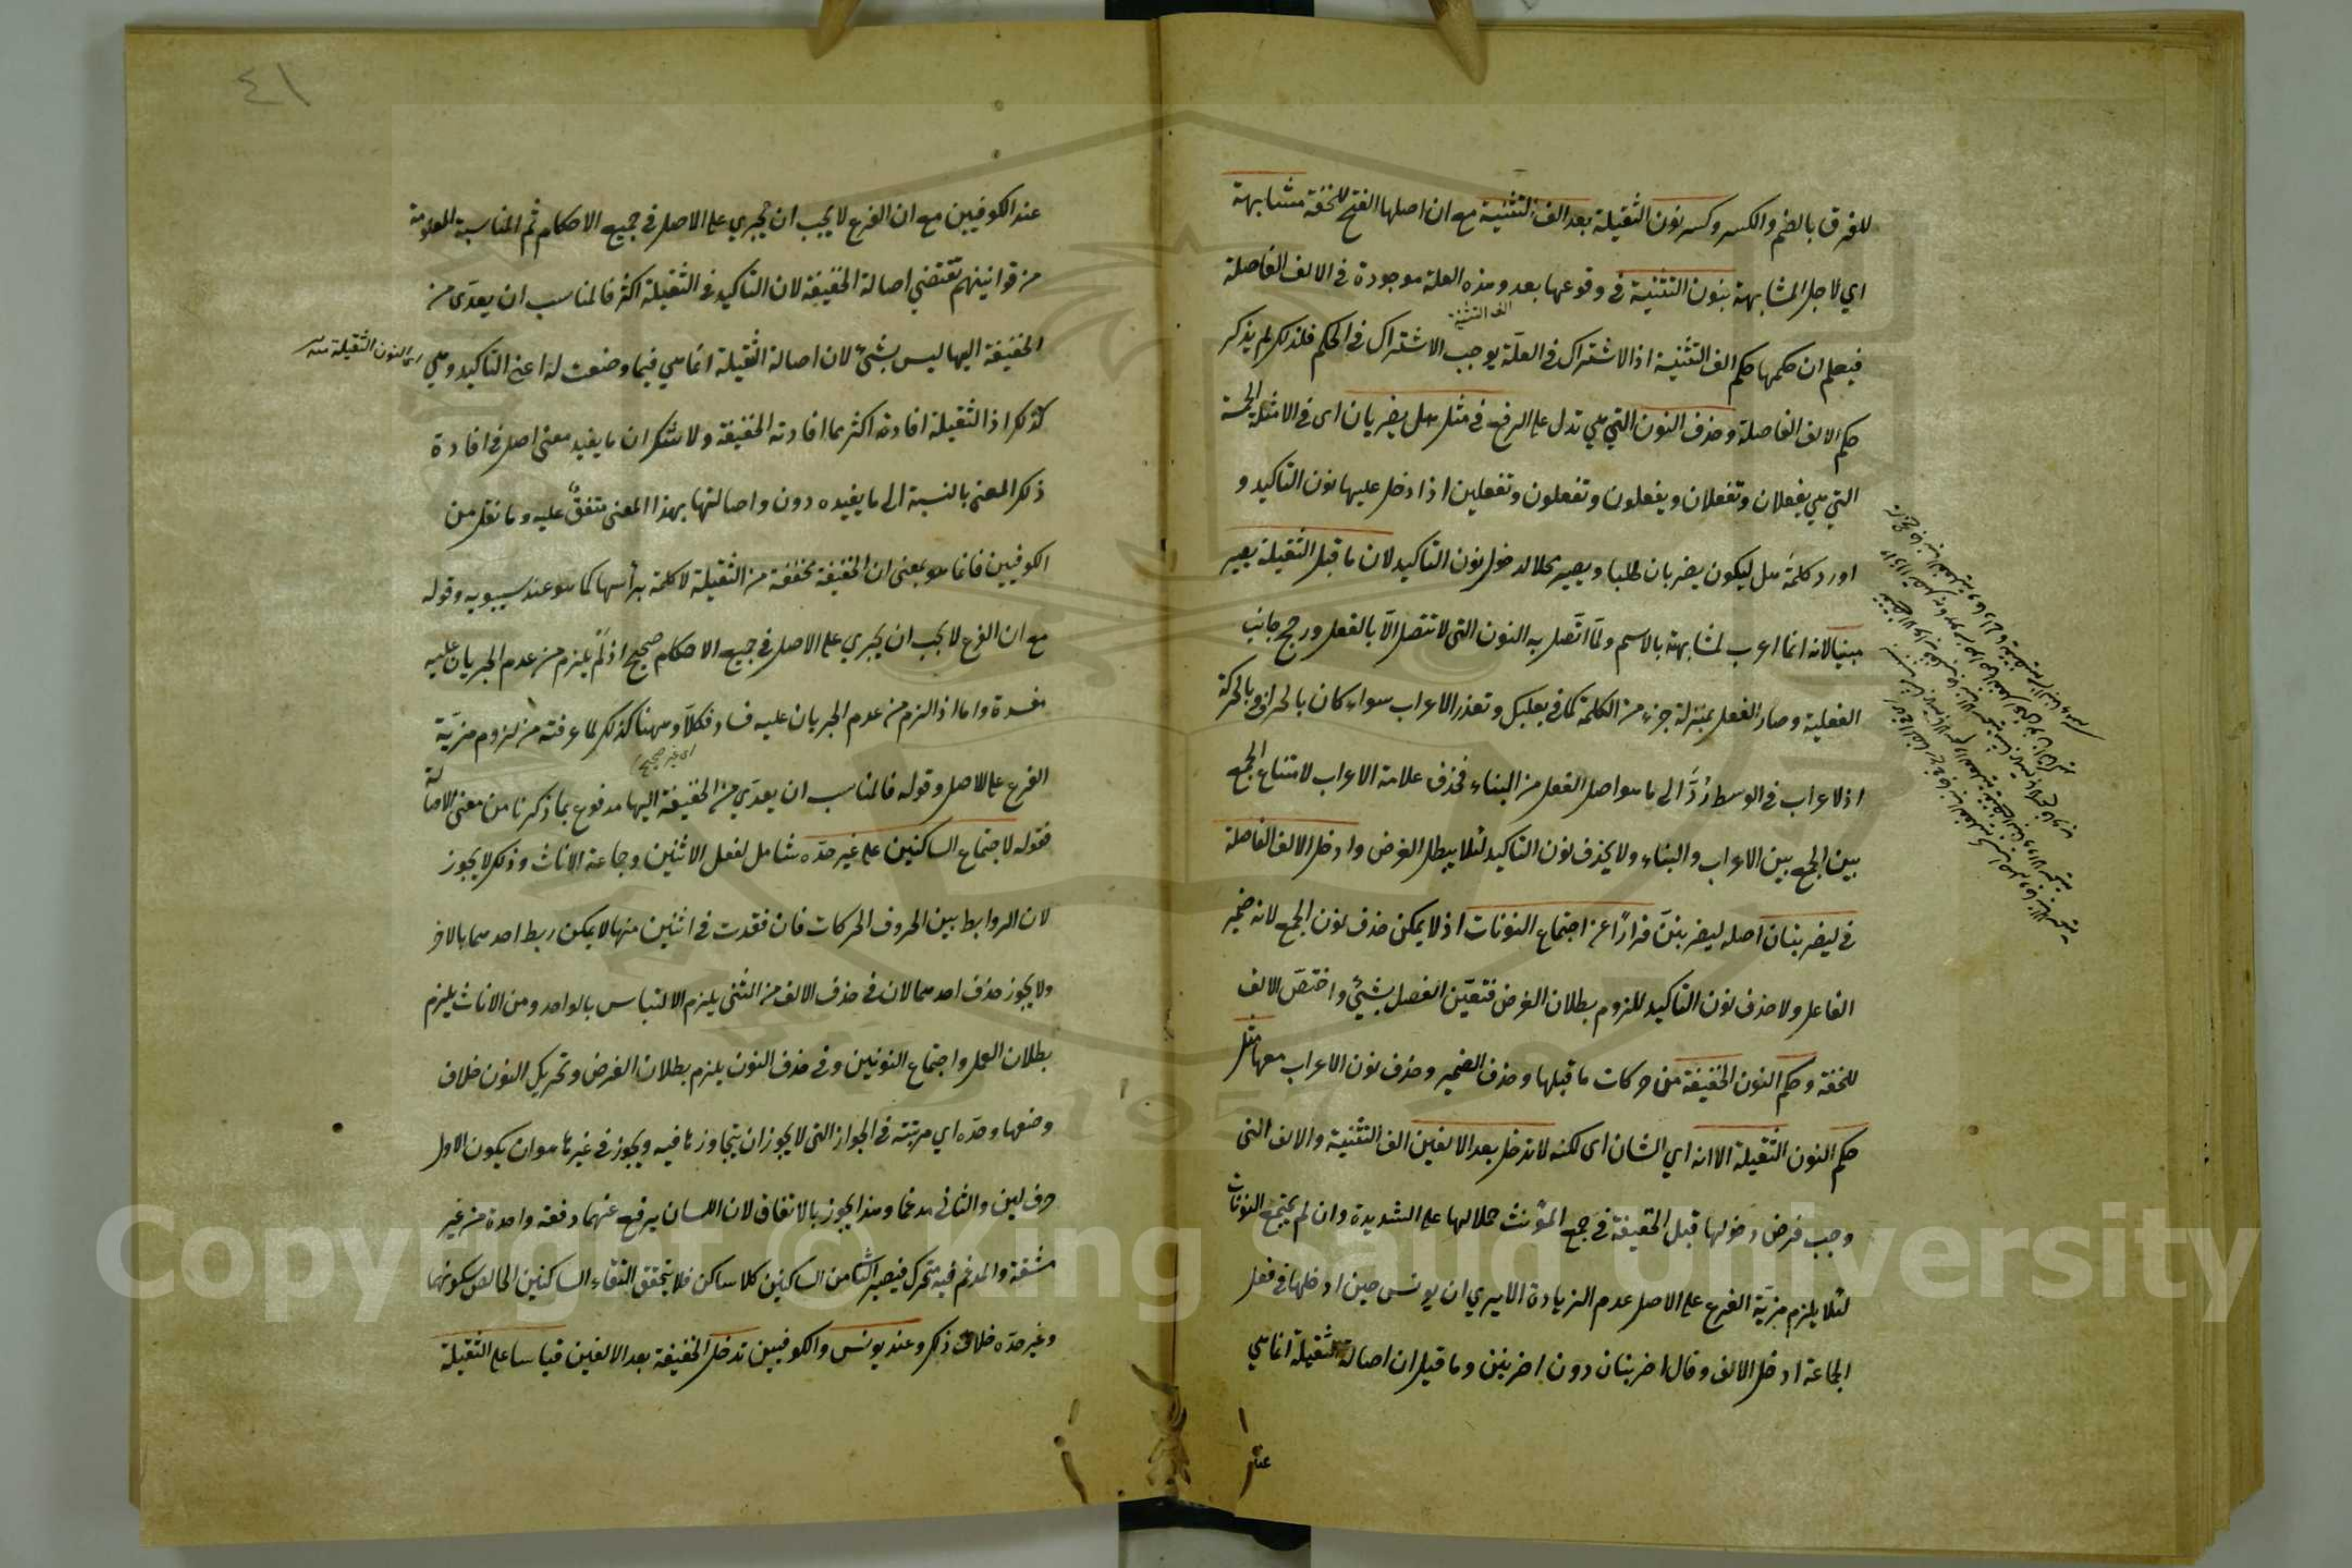 للفرق بالضم والكسر وكسر نون الثقيلة بعد الف التثنية مع ان اصلها الفتح للخفة مشابهة
اي لاجل المشابهة بنون التثنية في وقوعها بعد وهذه العلة موجودة في الالف الفاصلة
الف التثنية
فيعلم ان حكمها حكم الف التثنية اذ الاشتراك في العلّة يوجب الاشتراك في الحكم فلذلك لم يذكر
حكم الالف الفاصلة وحذف النون التي هي تدل على الرفع في مثل هل يضربان اى في الامثلة الخمسة
التي هي يفعلان وتفعلان ويفعلون وتفعلون وتفعلين اذا دخل عليها نون التاكيد و
اورد كلمة هل ليكون يضربان طلبا ويصير محلا لدخول نون التاكيد لان ما قبل الثقيلة يصير
مبنيا لانه انما اعرب لمشابهة بالاسم ولمّا اتّصل به النون التى لا تتصل الاّ بالفعل ورجح جانب
الفعلية وصار الفعل بمنزلة جزء من الكلمة كما في بعلبك وتعذر الاعراب سواء كان بالحرف او بالحركة
اذ لا اعراب في الوسط رُدَّ الى ما هو اصل الفعل من البناء فحذف علامة الاعراب لامتناع الجمع
بين الجمع بين الاعراب والبناء ولا يحذف نون التاكيد لئلا يبطل الغرض وادخل الالف الفاصلة
في ليضربنان اصله ليضربننّ فرارًا عن اجتماع النونات اذ لا يمكن حذف نون الجمع لانه ضمير
الفاعل ولا حذف نون التاكيد للزوم بطلان الغرض فتعّين الفصل بشيئ واختصّ الالف
للخفة وحكم النون الخفيفة من حركات ما قبلها وحذف الضمير وحذف نون الاعراب معها مثل
حكم النون الثقيلة الا انه اي الشان اى لكنه لا تدخل بعد الالفين الف التثنية والالف التى
وجب فرض دخولها قبل الخفيفة في جمع المؤنث حملا لها على الشديدة وان لم يجتمع النونات
لئلا يلزم مزيّة الفرع على الاصل عدم الزيادة الا يري ان يونس حين ادخلها في فعل
الجماعة ادخل الالف وقال اضربنان دون اضربنن وما قيل ان اصالة الثقيلة انما هي
عند
٤١
عند الكوفيين مع ان الفرع لا يجب ان يجري على الاصل في جميع الاحكام ثم المناسبة المعلومة
من قوانينهم تقتضي اصالة الخفيفة لان التاكيد في الثقيلة اكثر فالمناسب ان يعدّى من
الخفيفة اليها ليس بشئ لان اصالة الثقيلة انما هي فيما وضعت له اعني التاكيد وهي
اى النون الثقيلة منه
كذلك اذ الثقيلة افادته اكثر مما افادته الخفيفة ولا شك ان ما يفيد معنى اصل في افادة
ذلك المعنى بالنسبة الى ما يفيده دون واصالتها بهذا المعنى متفق عليه وما نقل من
الكوفيين فانما هو بمعنى ان الخفيفة مخففة من الثقيلة لا كلمة برأسها كما هو عند سيبويه وقوله
مع ان الفرع لا يجب ان يجري على الاصل في جميع الاحكام صحيح اذ لم يلزم من عدم الجريان عليه
مفسدة واما اذا لزم من عدم الجريان عليه فساد فكلاّ وههنا كذلك لما عرفته من لزوم مزيّة
اى غير صحيح
الفرع على الاصل وقوله فالمناسب ان يعدّي من الخفيفة اليها مدفوع بما ذكرنا من معنى الاصالة
فقوله لاجتماع الساكنين على غير حدّه شامل لفعل الاثنين وجماعة الاناث وذلك لا يجوز
لان الروابط بين الحروف الحركات فان فقدت في اثنين منها لا يمكن ربط احدهما بالاخر
ولا يجوز حذف احدهما لان في حذف الالف من المثنى يلزم الالتباس بالواحد ومن الاناث يلزم
بطلان العمل واجتماع النونين وفي حذف النون يلزم بطلان الغرض وتحريك النون خلاف
وضعها وحدّه اي مرتبته في الجواز التى لا يجوز ان يتجاوزها فيه ويجوز في غيرها هو ان يكون الاول
حرف لين والثاني مدغما وهذا يجوز بالاتفاق لان اللسان يرفع عنهما دفعة واحدة من غير
مشقة والمدغم فيه متحرك فيصير الثاني من الساكنين كلا ساكن فلا يتحقق التقاء الساكنين الخالص سكونهما
وغير حدّه خلاف ذلك وعند يونس والكوفيين تدخل الخفيفة بعد الالفين قياسا على الثقيلة
Copyright © King Saud University
1957